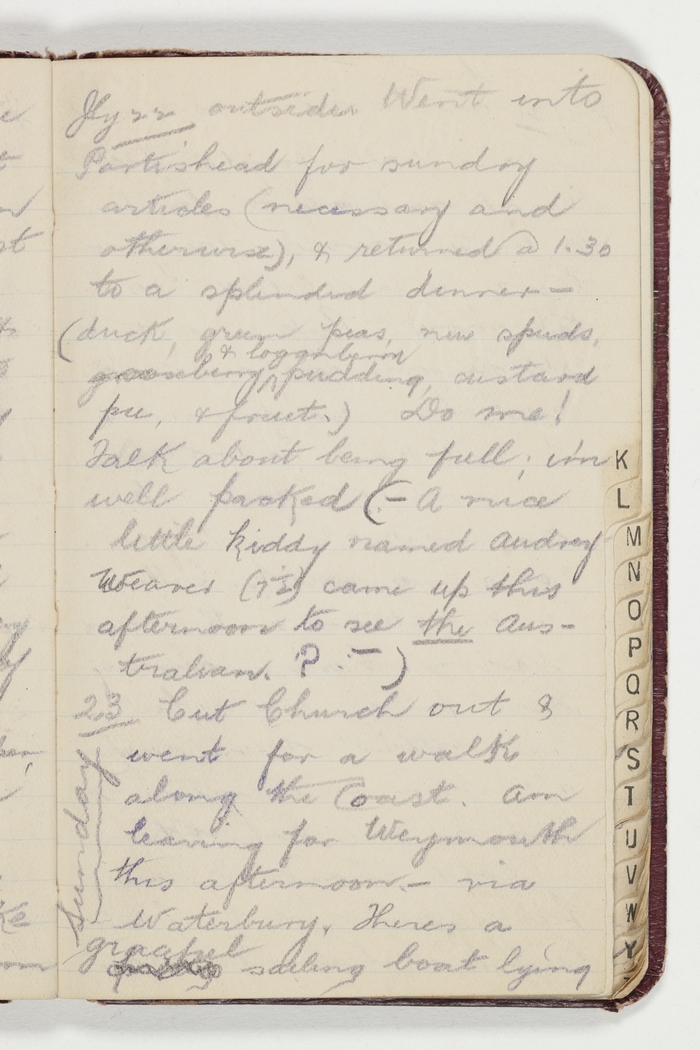 Jly 22 outsider Went into
Portishead for sundry
articles (necessary and
otherwise), & returned @ 1.30
to a splendid dinner—
(duck, green peas, new spuds,
& loggenberry
gooseberry ^ pudding, custard
pie, & fruit.) Do me!
Talk about being full; i'm
well packed (:— A nice
little kiddy named Audrey
Weaver (7½) came up this
afternoon to see the Aus-
tralian. ? :— )
23 Cut Church out &
Sunday
went for a walk
along the Coast. Am
leaving for Weymouth
this afternoon — via
Waterbury. Theres a
graceful
sailing boat lying
K
L
M
N
O
P
Q
R
S
T
U
V
W
Y